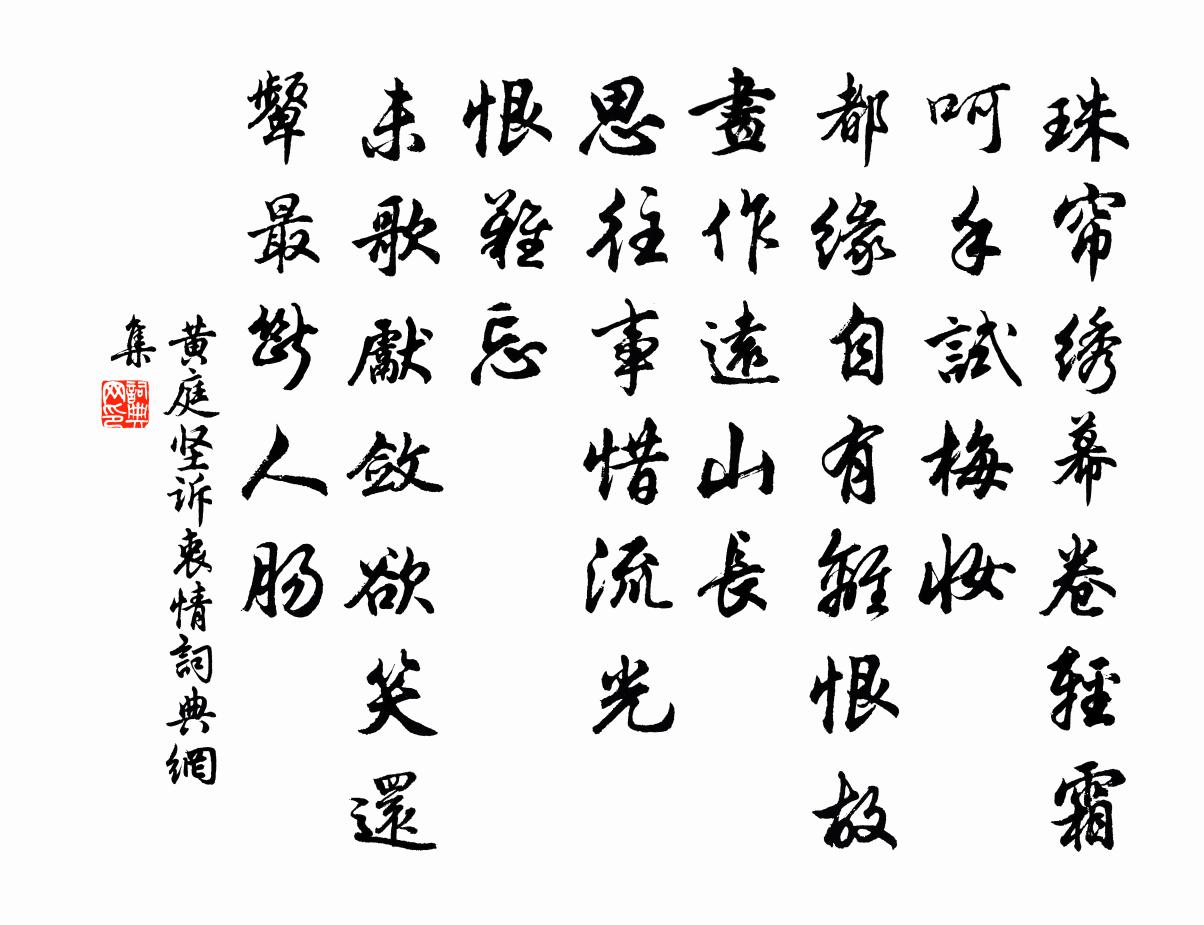 珠帘绣幕卷輕霜
呵手試梅妆
都缘自有離恨故
畫作遠山長
思往事惜流光
恨難忘
未歌獻斂欲笑還
顰最斷人肠
黄庭坚诉衷情詞典網
集
詞典网印